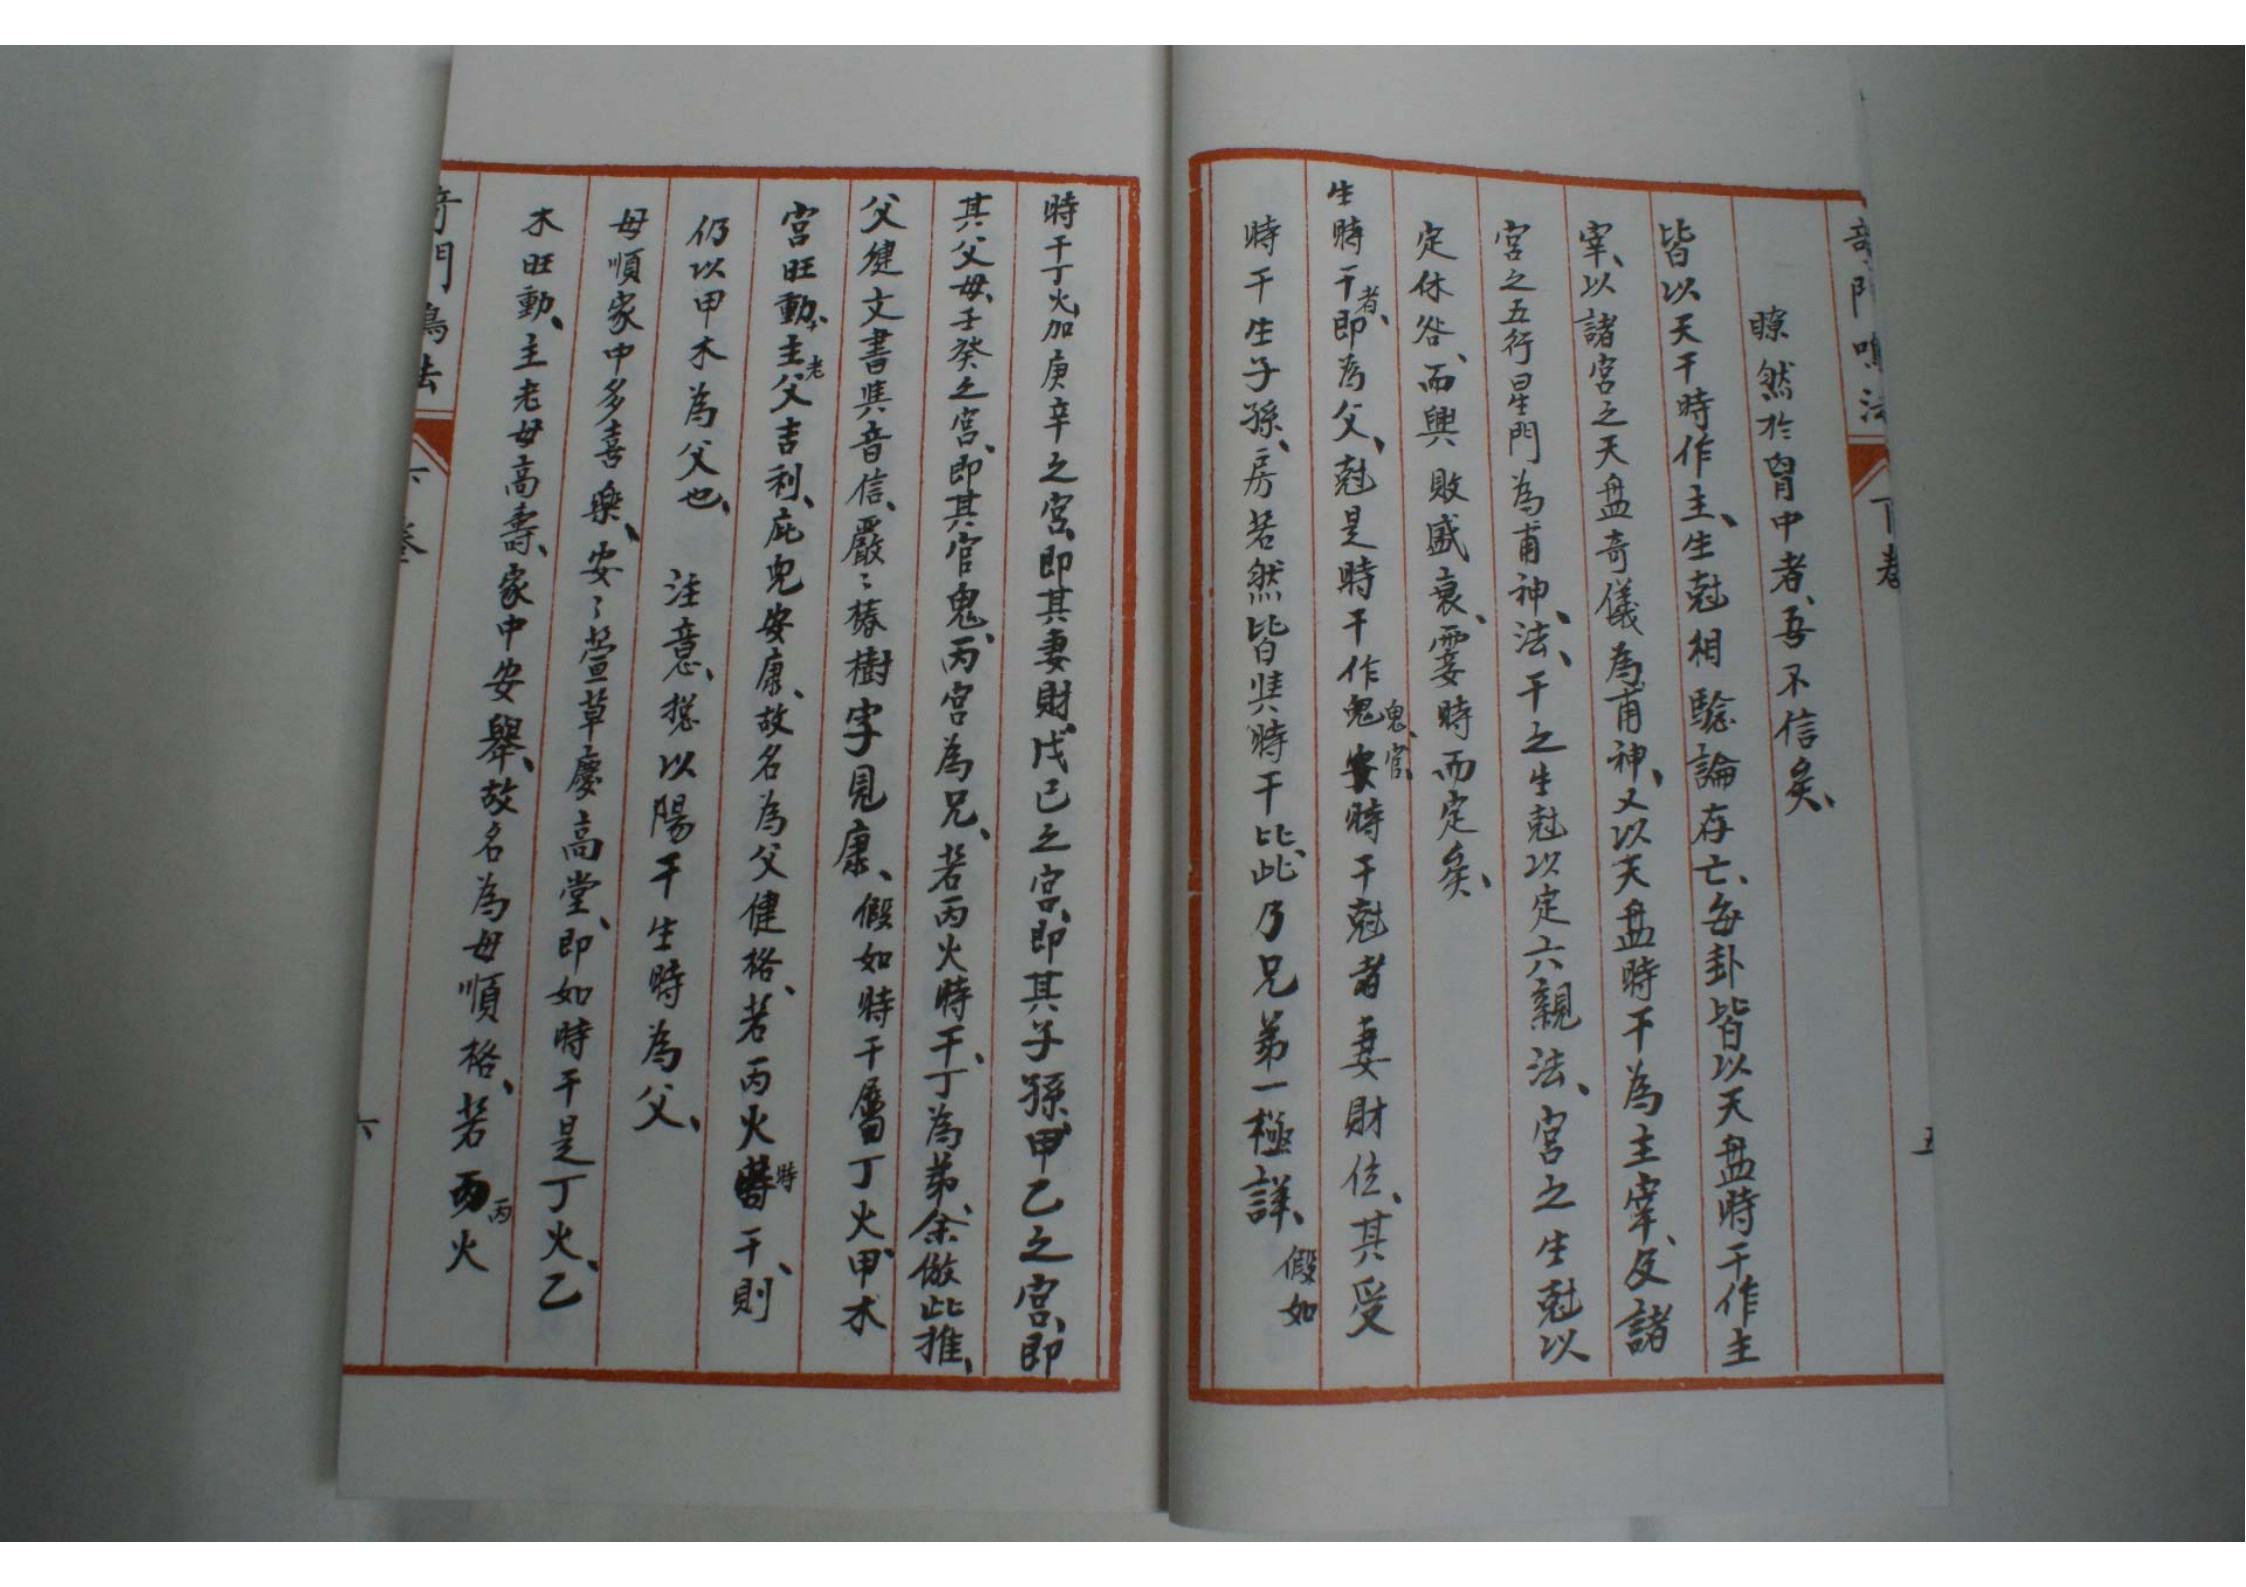 奇門鳴法 下卷 五
瞭然於胷中者、吾不信矣、
皆以天干時作主、生尅相驗論存亡、每卦皆以天盤時干作主
宰、以諸宮之天盤奇儀為甫神、又以天盤時干為主宰、及諸
宮之五行星門為甫神、法、干之生尅以定六親法、宮之生尅以
定休咎、而興敗盛衰、霎時而定矣、
生時干者、即為父、尅是時干作鬼鬼官、時干尅者妻財位、其受
時干生子孫、房若然皆與時干比、此乃兄弟一極詳、假如
時干丁火加庚辛之宮、即其妻財、戊己之宮、即其子孫、甲乙之宮、即
其父母、壬癸之宮、即其官鬼、丙宮為兄、若丙火時干、丁為弟、余倣此推、
父健文書與音信、嚴〻椿樹字見康、假如時干屬丁火、甲木
宮旺動、主老父吉利、庇兒安康、故名為父健格、若丙火時干、則
仍以甲木為父也、 注意、摠以陽干生時為父、
母順家中多喜樂、安〻萱草慶高堂、即如時干是丁火、乙
木旺動、主老母高壽、家中安舉、故名為母順格、若丙火
奇門鳴法 下卷 六